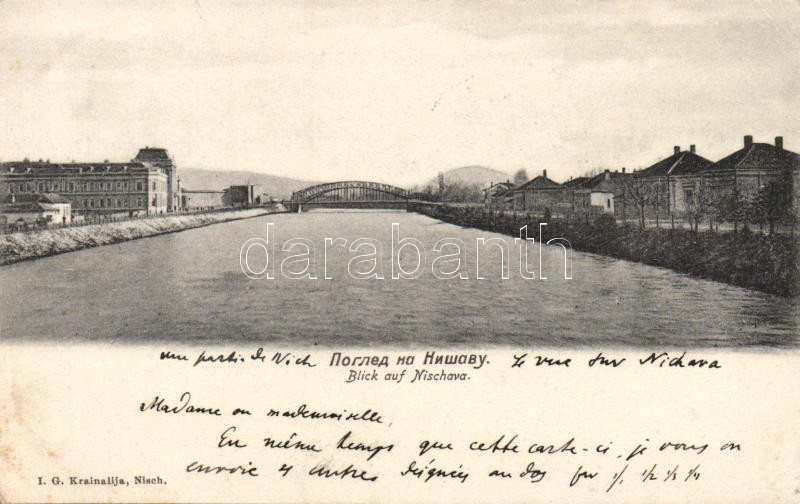 darabanth
une partie de Nich Поглед на Нишаву. Le vue sur Nichava
Blick auf Nischava.
Madame ou mademoiselle,
En même temps que cette carte-ci, je vous en
envoie 4 autres désignés au dos par 1/1 1/2 1/3 1/4
I. G. Krainalija, Nisch.